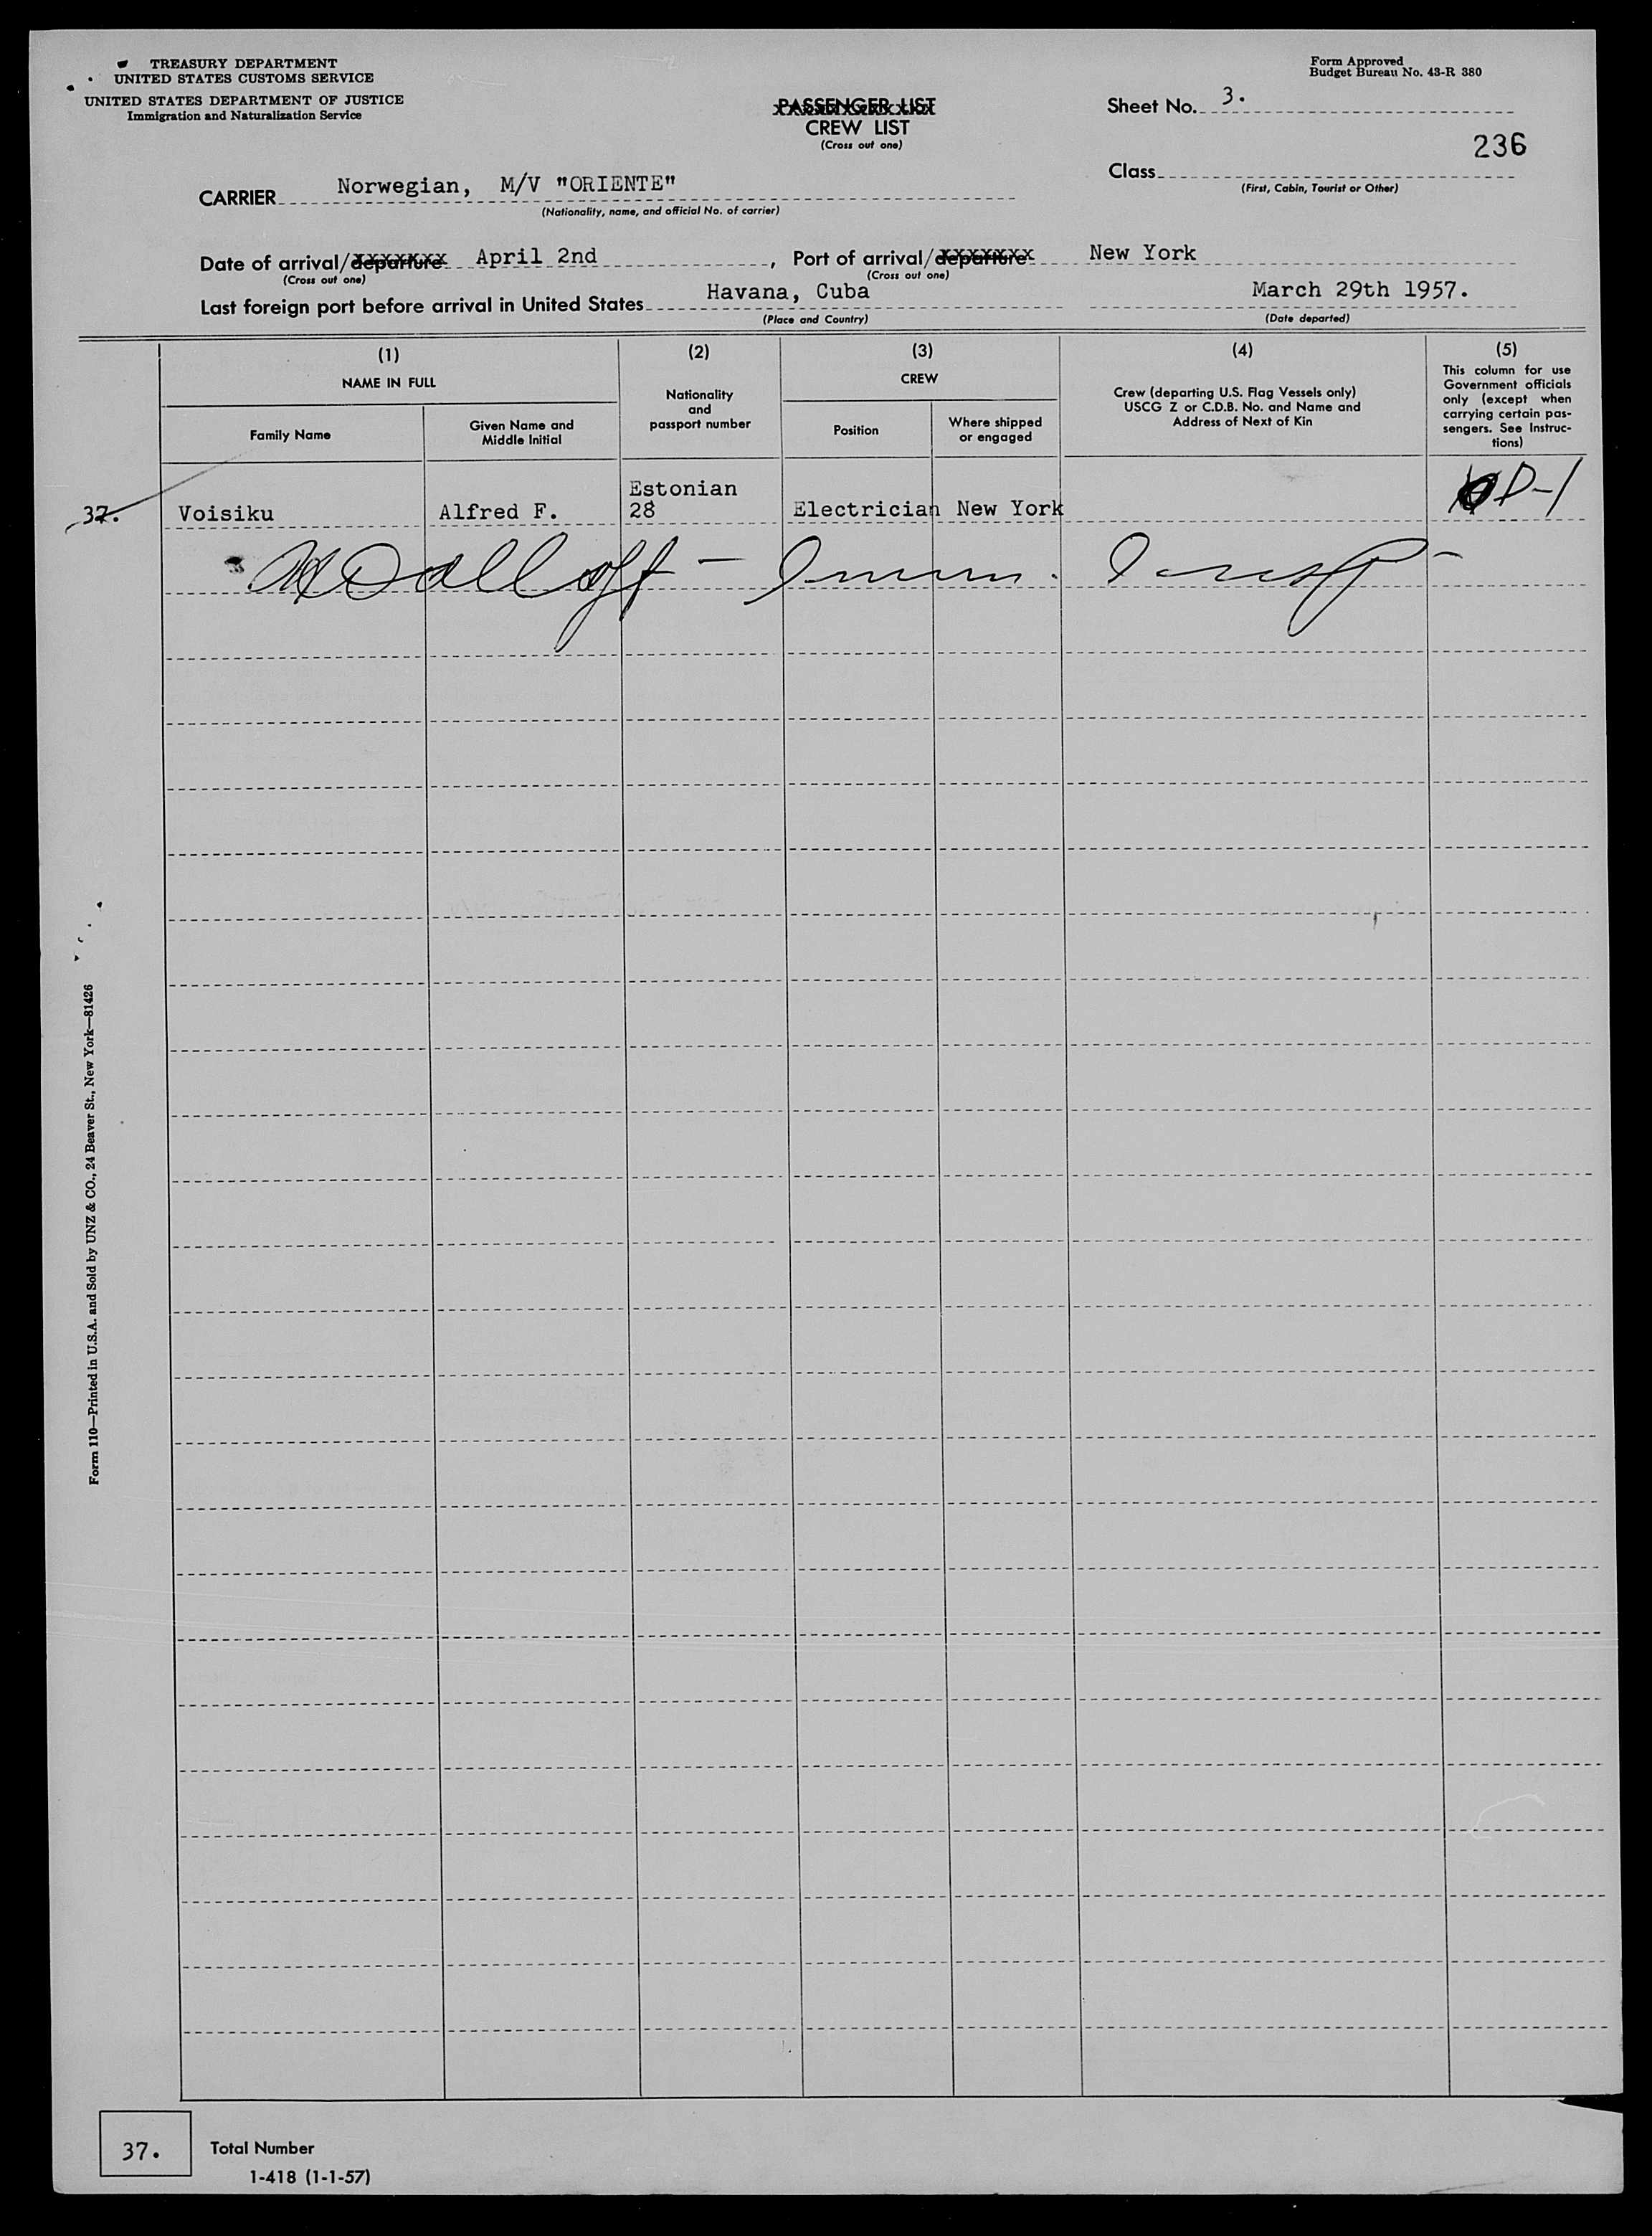 TREASURY DEPARTMENT
UNITED STATES CUSTOMS SERVICE
UNITED STATES DEPARTMENT OF JUSTICE
Immigration and Naturalization Service
PASSENGER LIST
CREW LIST
(Cross out one)
Form Approved
Budget Bureau No. 43-R 380
Sheet No. 3.
236
Class
(First, Cabin, Tourist or Other)
CARRIER Norwegian, M/V "ORIENTE"
(Nationality, name, and official No. of carrier)
Date of arrival/departure April 2nd, Port of arrival/departure New York
(Cross out one) (Cross out one)
Last foreign port before arrival in United States Havana, Cuba March 29th 1957.
(Place and Country) (Date departed)
(1) (2) (3) (4) (5)
NAME IN FULL
Family Name
Given Name and
Middle Initial
Nationality
and
passport number
CREW
Position
Where shipped
or engaged
Crew (departing U.S. Flag Vessels only)
USCG Z or C.D.B. No. and Name and
Address of Next of Kin
This column for use
Government officials
only (except when
carrying certain pas-
sengers. See Instruc-
tions)
37. Voisiku Alfred F. Estonian
28 Electrician New York D-1
Form 110—Printed in U.S.A. and Sold by UNZ & CO., 24 Beaver St., New York—81426
37. Total Number
1-418 (1-1-57)